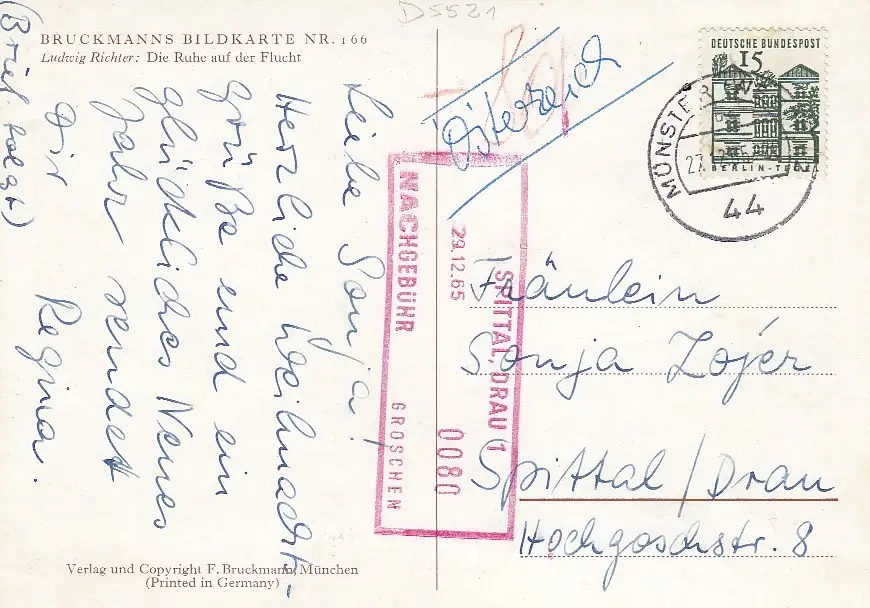 D5521
BRUCKMANNS BILDKARTE NR. 166
Ludwig Richter: Die Ruhe auf der Flucht
Liebe Sonja!
Herzliche Weihnachts-
grüße und ein
glückliches Neues
Jahr sendet
Dir
Regina.
(Brief folgt)
Verlag und Copyright F. Bruckmann, München
(Printed in Germany)
80
Österreich
DEUTSCHE BUNDESPOST
15
BERLIN-TEGEL
MÜNSTER
44
NACHGEBÜHR
GROSCHEN
29.12.65
0080
SPITTAL, DRAU 1
Fräulein
Sonja Lojer
Spittal / Drau
Hochgoschstr. 8